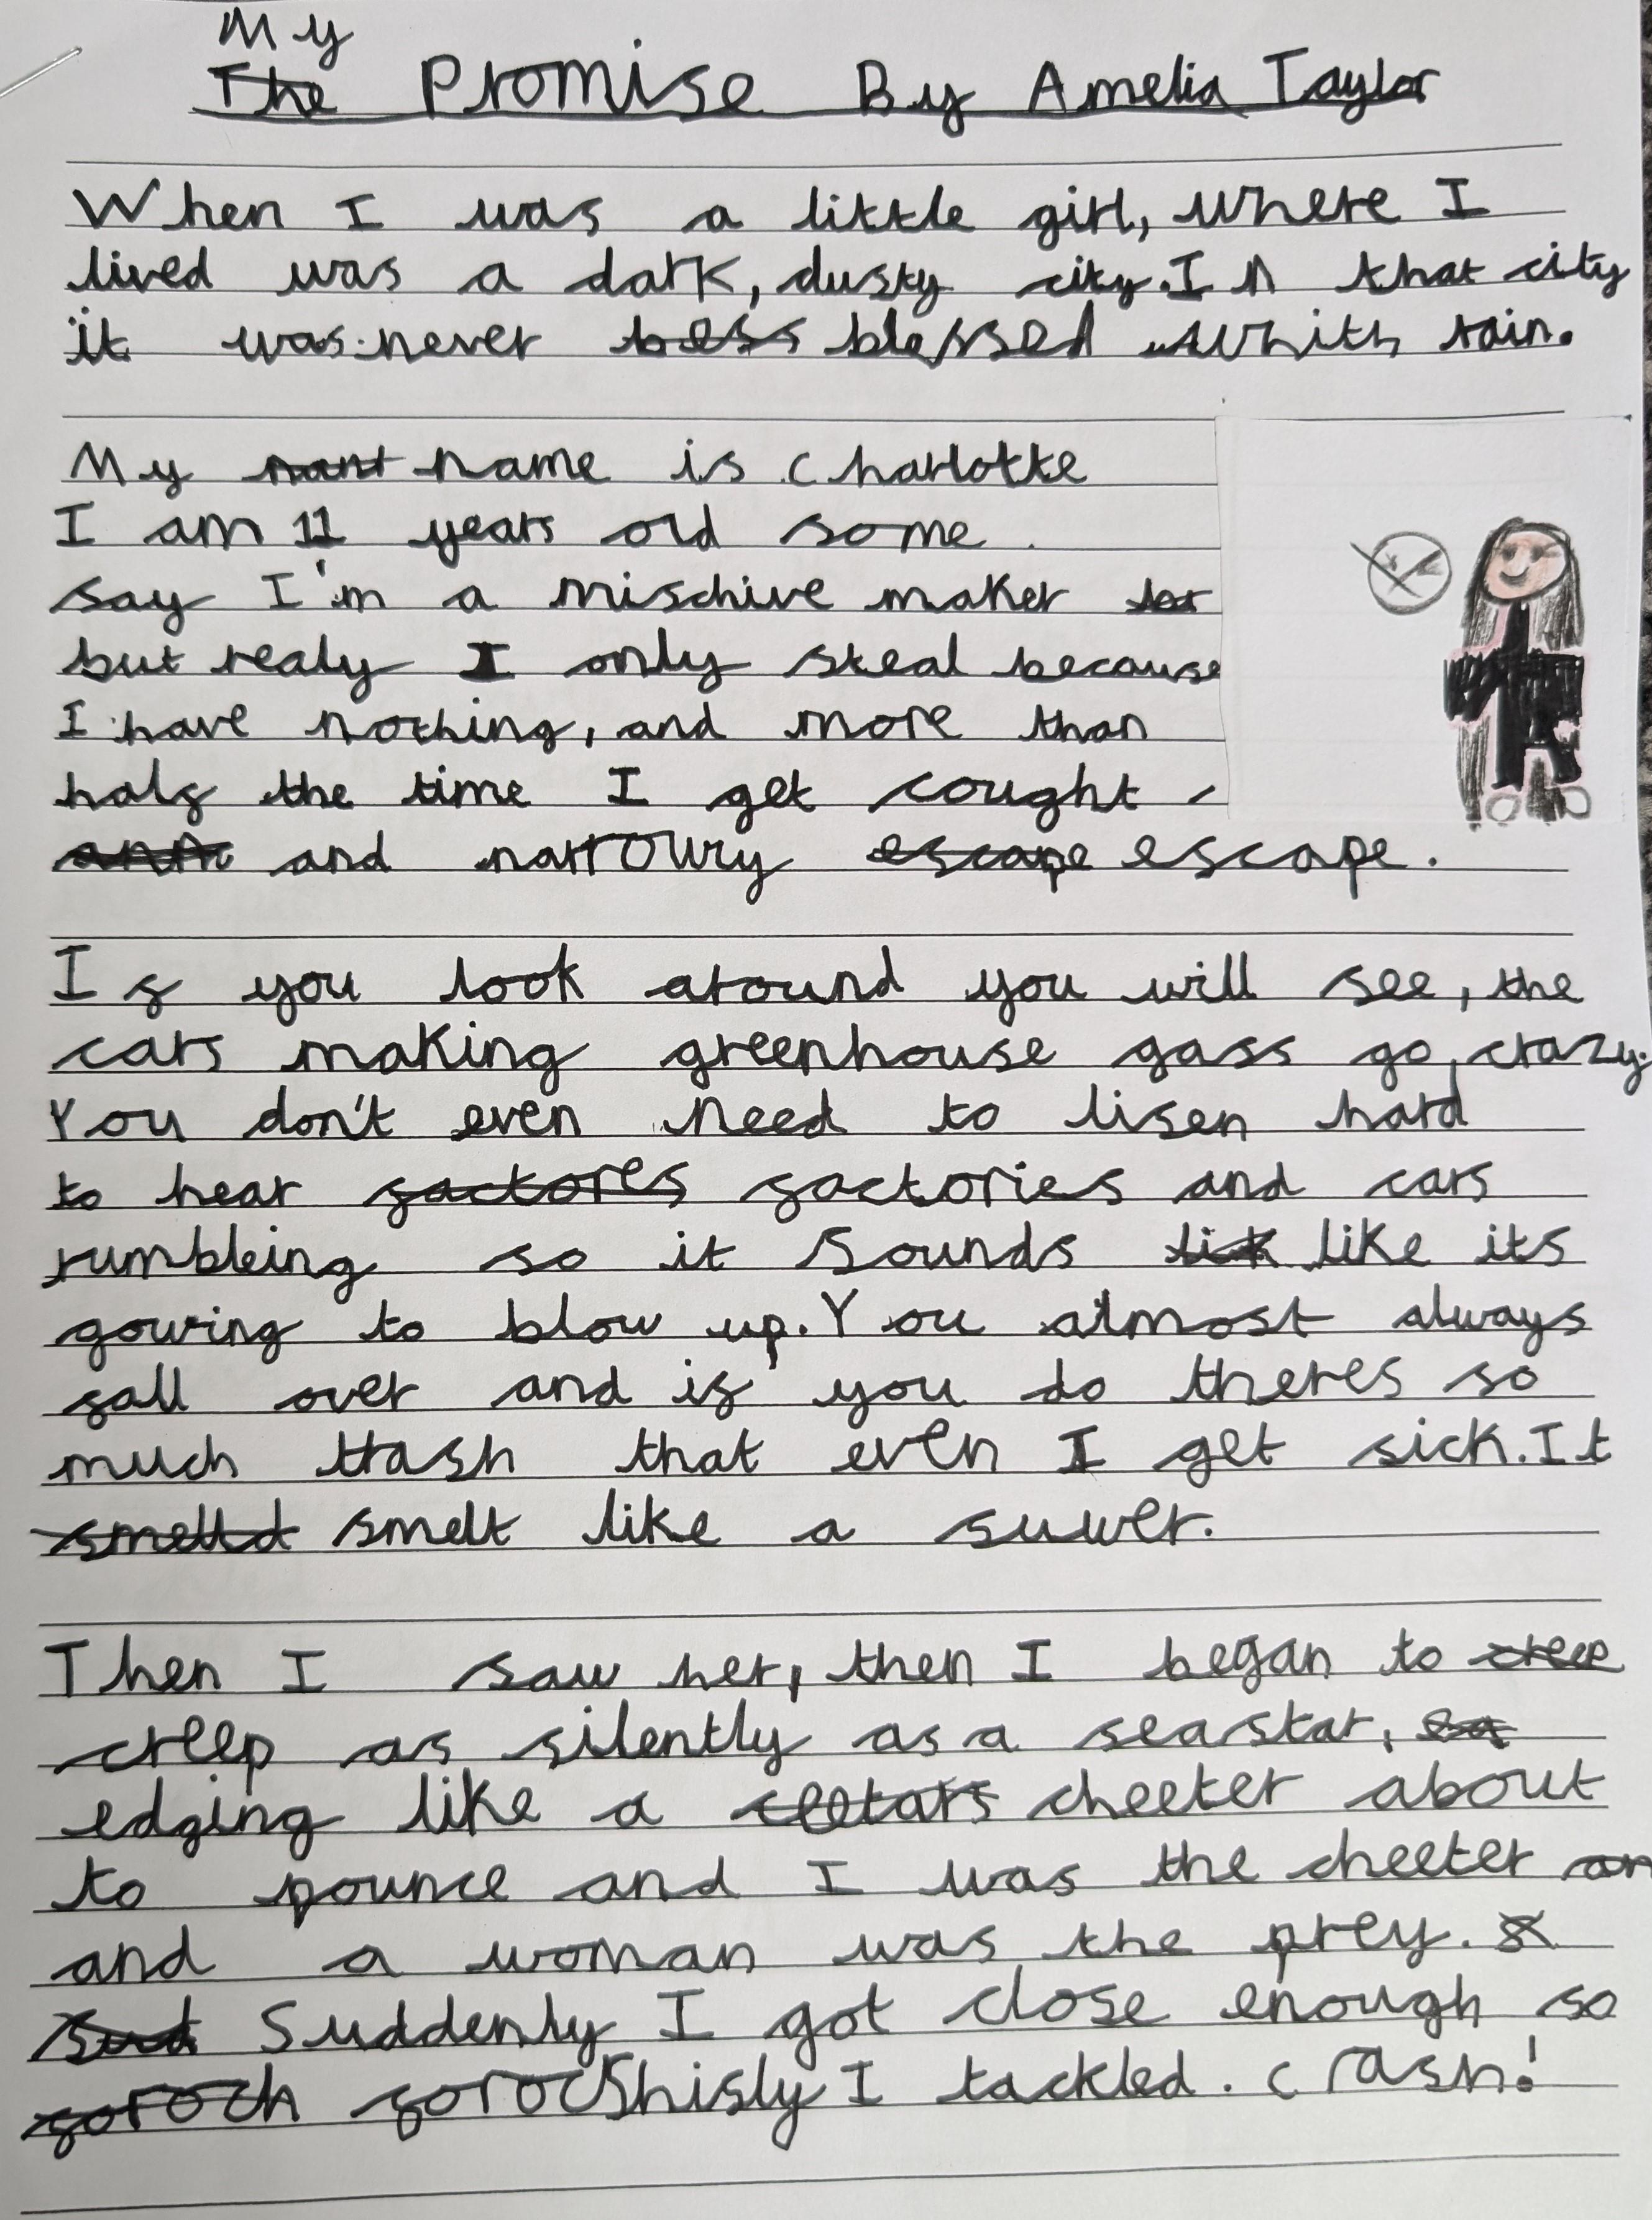 My
The Promise By Amelia Taylor
When I was a little girl, where I
lived was a dark, dusty city. In that city
it was never bess blessed whith rain.
My name is Charlotte
I am 11 years old some
say I'm a mischive maker
but realy I only steal because
I have nothing, and more than
half the time I get cought
and narrowry escape escape.
If you look around you will see, the
cars making greenhouse gass go crazy.
You don't even need to lisen hard
to hear factores factories and cars
rumbleing so it sounds lik like its
gowing to blow up. You almost always
fall over and if you do theres so
much trash that even I get sick. It
smelld smelt like a suwer.
Then I saw her, then I began to creep
creep as silently as a seastar,
edging like a ceetars cheeter about
to pounce and I was the cheeter an
and a woman was the prey. S
Sud Suddenly I got close enough so
foroch forocshisly I tackled. Crash!